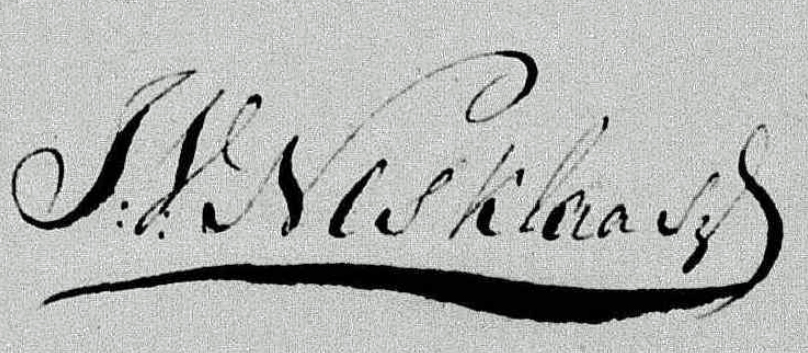 J. V. Nesklaasz